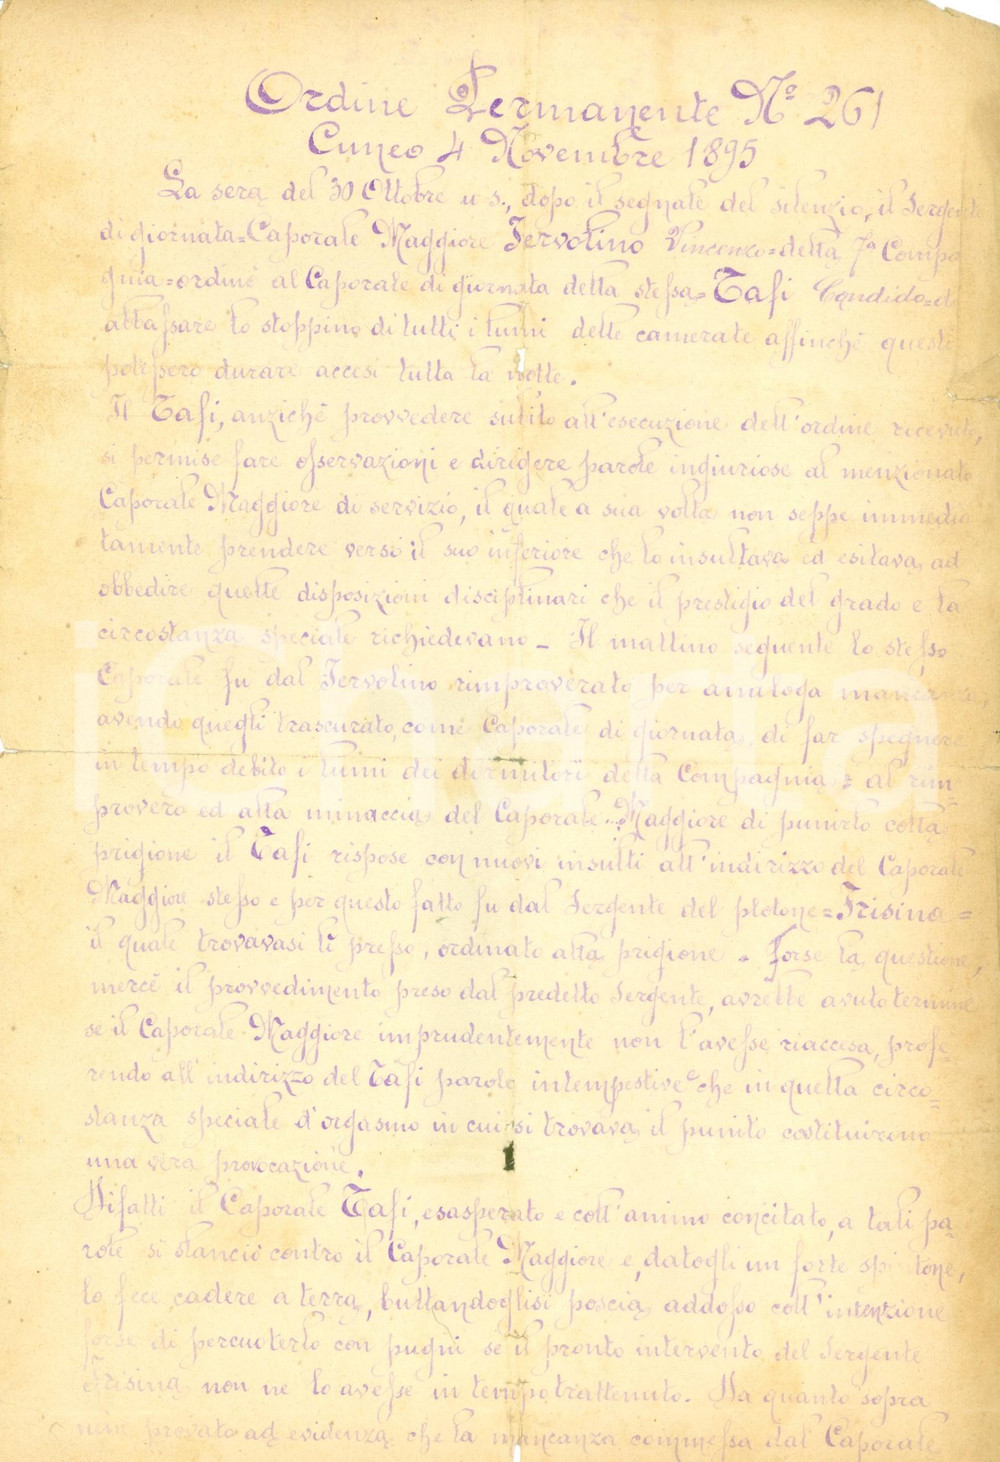 Ordine Permanente Nº 261
Cuneo 4 Novembre 1895
La sera del 30 Ottobre u. s., dopo il segnale del silenzio, il Sergente
di giornata=Caporale Maggiore Iervolino Vincenzo=della 7ª Compa
gnia=ordinò al Caporale di giornata della stessa=Tafi Candido=di
abbassare lo stoppino di tutti i lumi delle camerate affinchè questi
potessero durare accesi tutta la notte.
Il Tafi, anzichè provvedere subito all'esecuzione dell'ordine ricevuto,
si permise fare osservazioni e dirigere parole ingiuriose al menzionato
Caporale Maggiore di servizio, il quale a sua volta non seppe immedia
tamente prendere verso il suo inferiore che lo insultava ed esitava ad
obbedire quelle disposizioni disciplinari che il prestigio del grado e la
circostanza speciale richiedevano - Il mattino seguente lo stesso
Caporale fu dal Iervolino rimproverato per analoga mancanza,
avendo quegli trascurato, come Caporale di giornata, di far spegnere
in tempo debito i lumi dei dormitori della Compagnia = al rim=
provero ed alla minaccia del Caporale Maggiore di punirlo colla
prigione il Tafi rispose con nuovi insulti all'indirizzo del Caporale
Maggiore stesso e per questo fatto fu dal Sergente del plotone=Frisina=
il quale trovavasi lì presso, ordinato alla prigione. Forse la questione,
mercè il provvedimento preso dal predetto Sergente, avrebbe avuto termine
se il Caporale Maggiore imprudentemente non l'avesse riaccesa, profe=
rendo all'indirizzo del Tafi parole intempestive che in quella circo=
stanza speciale d'orgasmo in cui si trovava il punito costituirono
una vera provocazione.
Difatti il Caporale Tafi, esasperato e coll'animo concitato, a tali pa=
role si slanciò contro il Caporale Maggiore e, datogli un forte spintone,
lo fece cadere a terra, buttandoglisi poscia addosso coll'intenzione
forse di percuoterlo con pugni se il pronto intervento del Sergente
Frisina non ne lo avesse in tempo trattenuto. Da quanto sopra
vien provato ad evidenza che la mancanza commessa dal Caporale